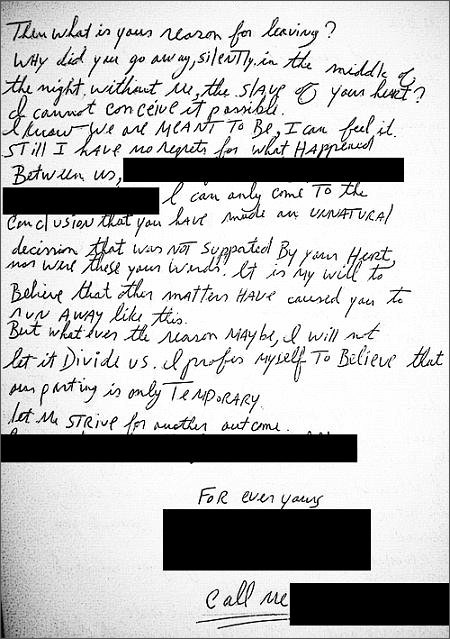 Then what is your reason for leaving?
Why did you go away, silently, in the middle of
the night. without me, the slave of your heart?
I cannot conceive it possible.
I know we are MEANT TO Be, I can feel it.
Still I HAVE no regrets for what HAppened
Between us,
I can only come To the
conclusion that you HAVE made an UNNATURAl
decision that was NOT supported By your Heart,
nor were these your words. It is my will to
Believe that other matters HAVE caused you to
run AWAY like this.
But what ever the reason MAYbe, I will not
let it Divide us. I prefer myself To Believe that
our parting is only TEMPORARY.
let me STRIVE for another outcome.
FOR ever yours
Call me